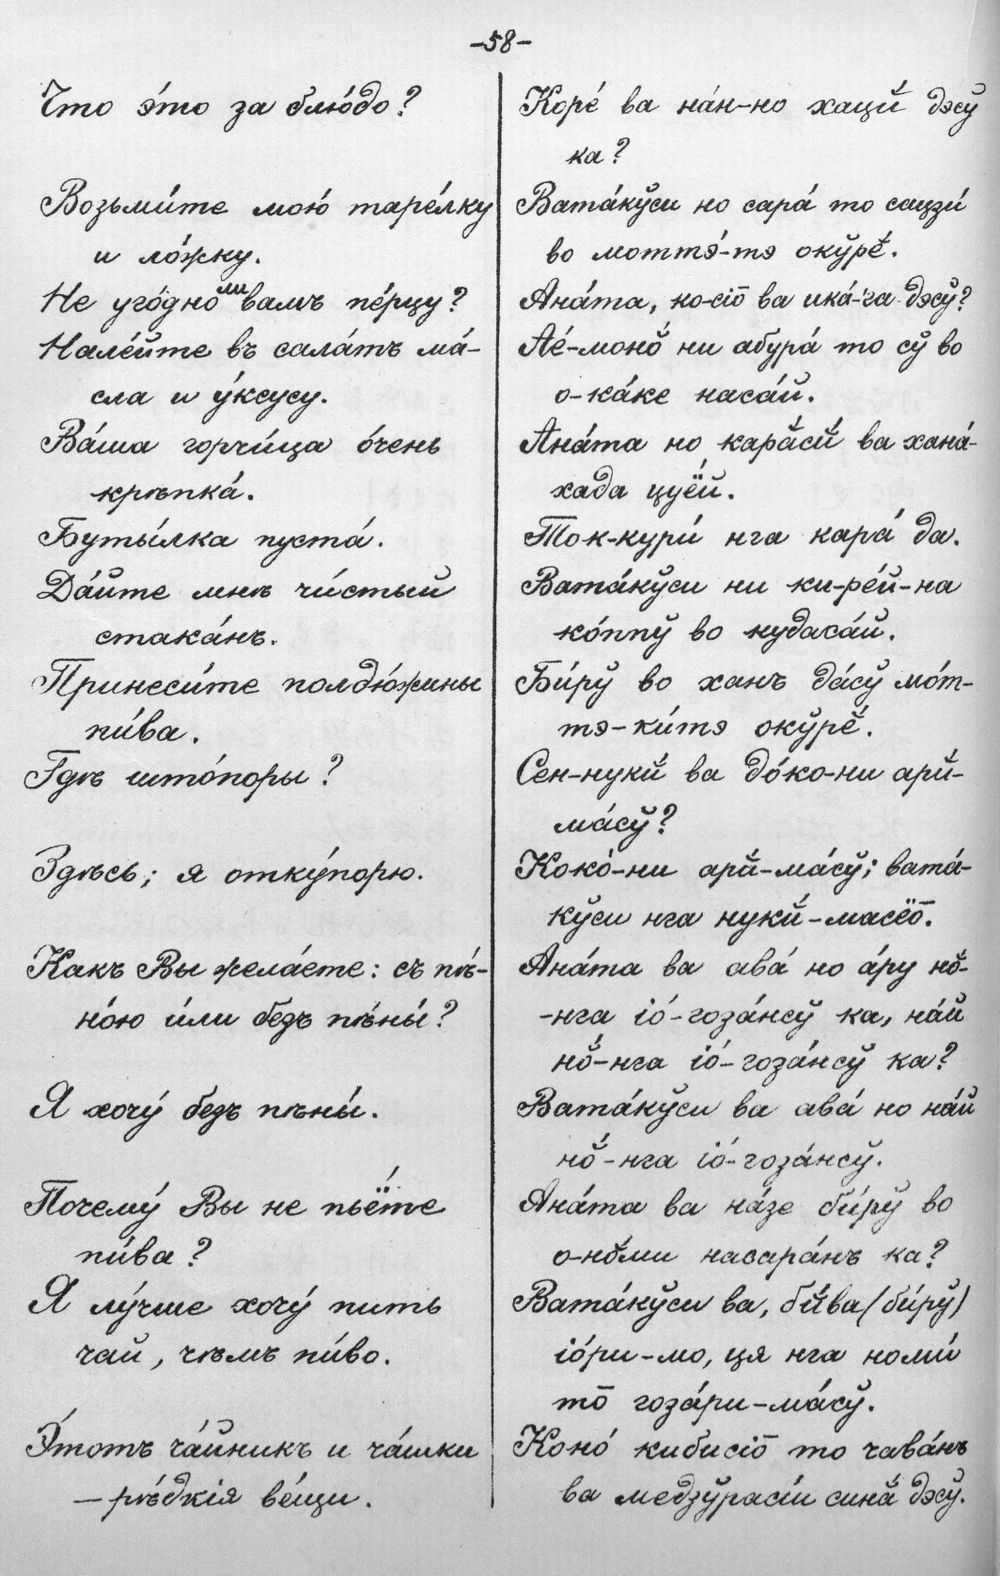 -58-
Что э́то за блю́до?
Возьми́те мою́ таре́лку
и ло́жку.
Не уго́дно ли вамъ пе́рцу?
Нале́йте въ сала́тъ ма́-
сла и у́ксусу.
Ва́ша горчи́ца о́чень
крѣпка́.
Буты́лка пуста́.
Да́йте мнѣ чи́стый
стака́нъ.
Принеси́те полдю́жины
пи́ва.
Гдѣ што́поры?
Здѣсь; я отку́порю.
Какъ Вы жела́ете: съ пѣ́-
но́ю и́ли безъ пѣ́ны́?
Я хочу́ безъ пѣны́.
Почему́ Вы не пьё́те
пи́ва?
Я лу́чше хочу́ пить
чай, чѣмъ пи́во.
Э́тотъ ча́йникъ и ча́шки
— рѣ́дкія ве́щи.
Коре́ ва на́н-но хацй́ дэсў
ка?
Вата́кўси но сара́ то сацзи́
во моттэ́-тэ окўрӗ́.
Ана́та, ко-сіо̄ ва ика́-га дэсў?
Ае́-моно̆́ ни абура́ то сў во
о-ка́ке наса́й.
Ана́та но карӑсй́ ва хана́-
хада цуё́й.
Ток-кури́ нга кара́ да.
Вата́кўси ни ки-ре́й-на
ко́ппў во кудаса́й.
Би́рў во ханъ да́сў мо́т-
тэ-ки́тэ окўрӗ́.
Сен-нукй́ ва до́ко-ни арй́-
ма́сў?
Коко́-ни арй́-ма́сў; вата́-
кўси нга нукй́-масё̄.
Ана́та ва ава́ но а́ру но̆́-
-нга іо́-гоза́нсў ка, на́й
но̆́-нга іо́-гоза́нсў ка?
Вата́кўси ва ава́ но на́й
но̆́-нга іо́-гоза́нсў.
Ана́та ва на́зе би́рў во
о-но̆ми насара́нъ ка?
Вата́кўси ва, бй́ва (би́рў)
іо́ри-мо, ця нга номи́
то̄ гоза́ри-ма́сў.
Коно́ кибисіо̄ то чава́нъ
ва медзўрасі́и синӑ́ дэсў.